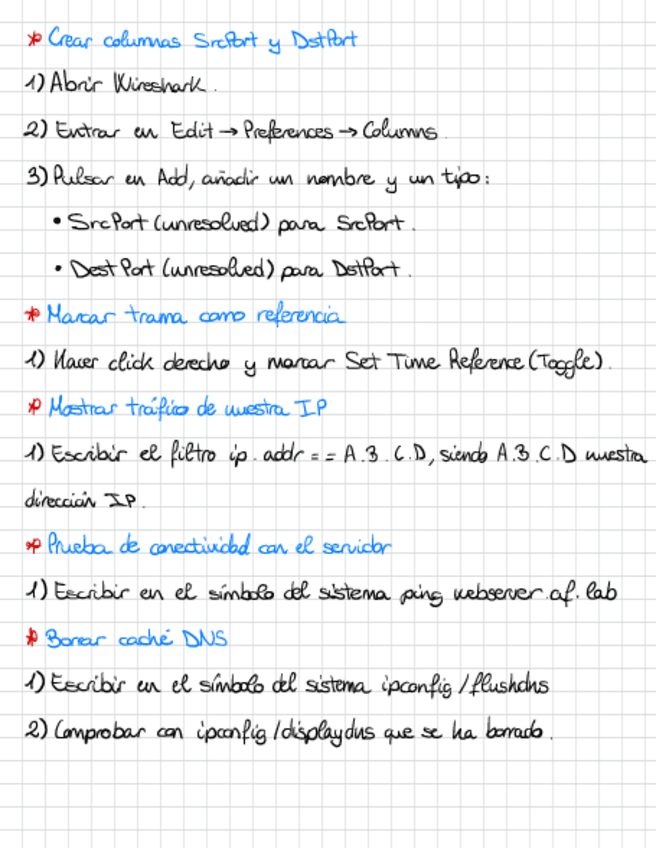 * Crear columnas SrcPort y DstPort
1) Abrir Wireshark.
2) Entrar en Edit → Preferences → Columns
3) Pulsar en Add, añadir un nombre y un tipo:
• SrcPort (unresolved) para SrcPort.
• Dest Port (unresolved) para DstPort.
* Marcar trama como referencia
1) Hacer click derecho y marcar Set Time Reference (Toggle).
* Mostrar tráfico de nuestra IP
1) Escribir el filtro ip.addr == A.B.C.D, siendo A.B.C.D nuestra
dirección IP.
* Prueba de conectividad con el servidor
1) Escribir en el símbolo del sistema ping webserver.af.lab
* Borrar caché DNS
1) Escribir en el símbolo del sistema ipconfig /flushdns
2) Comprobar con ipconfig /displaydns que se ha borrado.